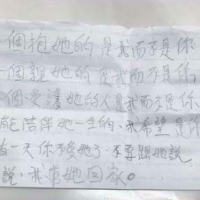 個抱她的是我而不是你
個親她的是我而不是你,
個愛讓她的人是我而不是你、
能陪伴她一生的、我希望是
一天你不愛她了、不要跟她說
說,我帶她回家。